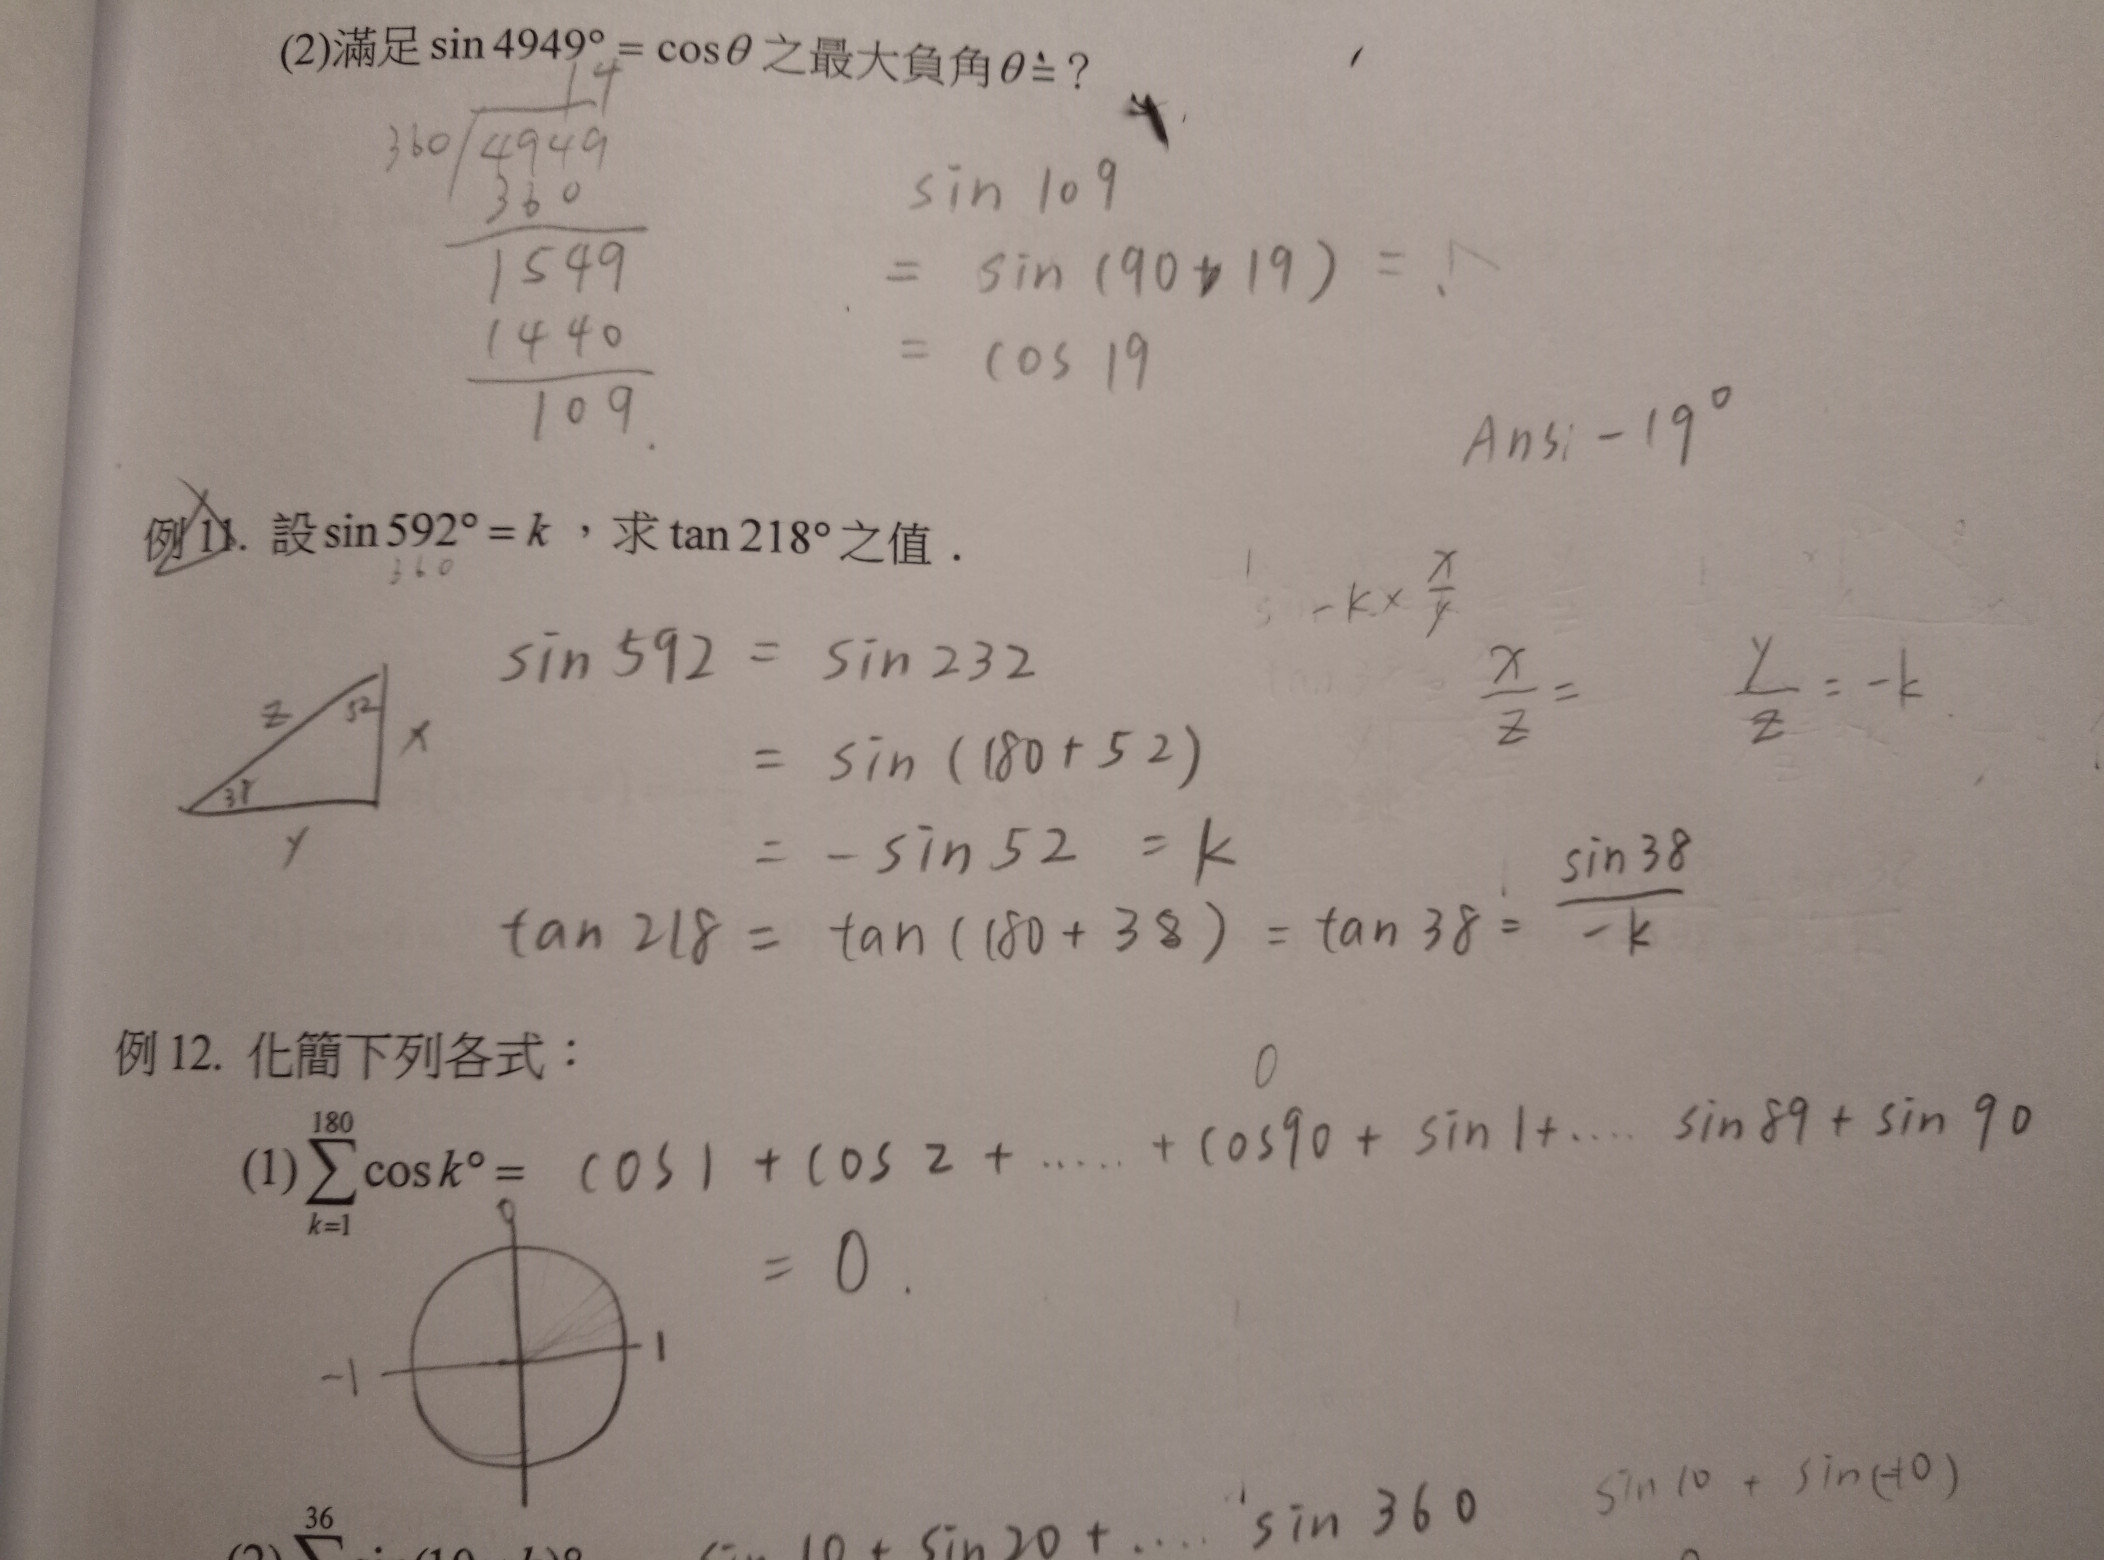 (2)滿足 sin 4949° = cosθ 之最大負角θ≐?
14
360 4949
360
1549
1440
109
sin 109
= sin (90+19) =
= cos 19
Ans: -19°
例11. 設 sin 592° = k ,求 tan 218° 之值.
360
-k× x/y
sin 592 = sin 232
x/z = y/z = -k
z 52 x
38
y
= sin (180+52)
= - sin 52 = k
tan 218 = tan (180+38) = tan 38 = sin38/-k
例 12. 化簡下列各式:
0
(1) ∑_{k=1}^{180} cos k° = cos 1 + cos 2 + ..... + cos90 + sin 1+.... sin 89 + sin 90
= 0.
0
-1 1
sin 10 + sin(-10)
36
sin 10 + sin 20 + .... sin 360